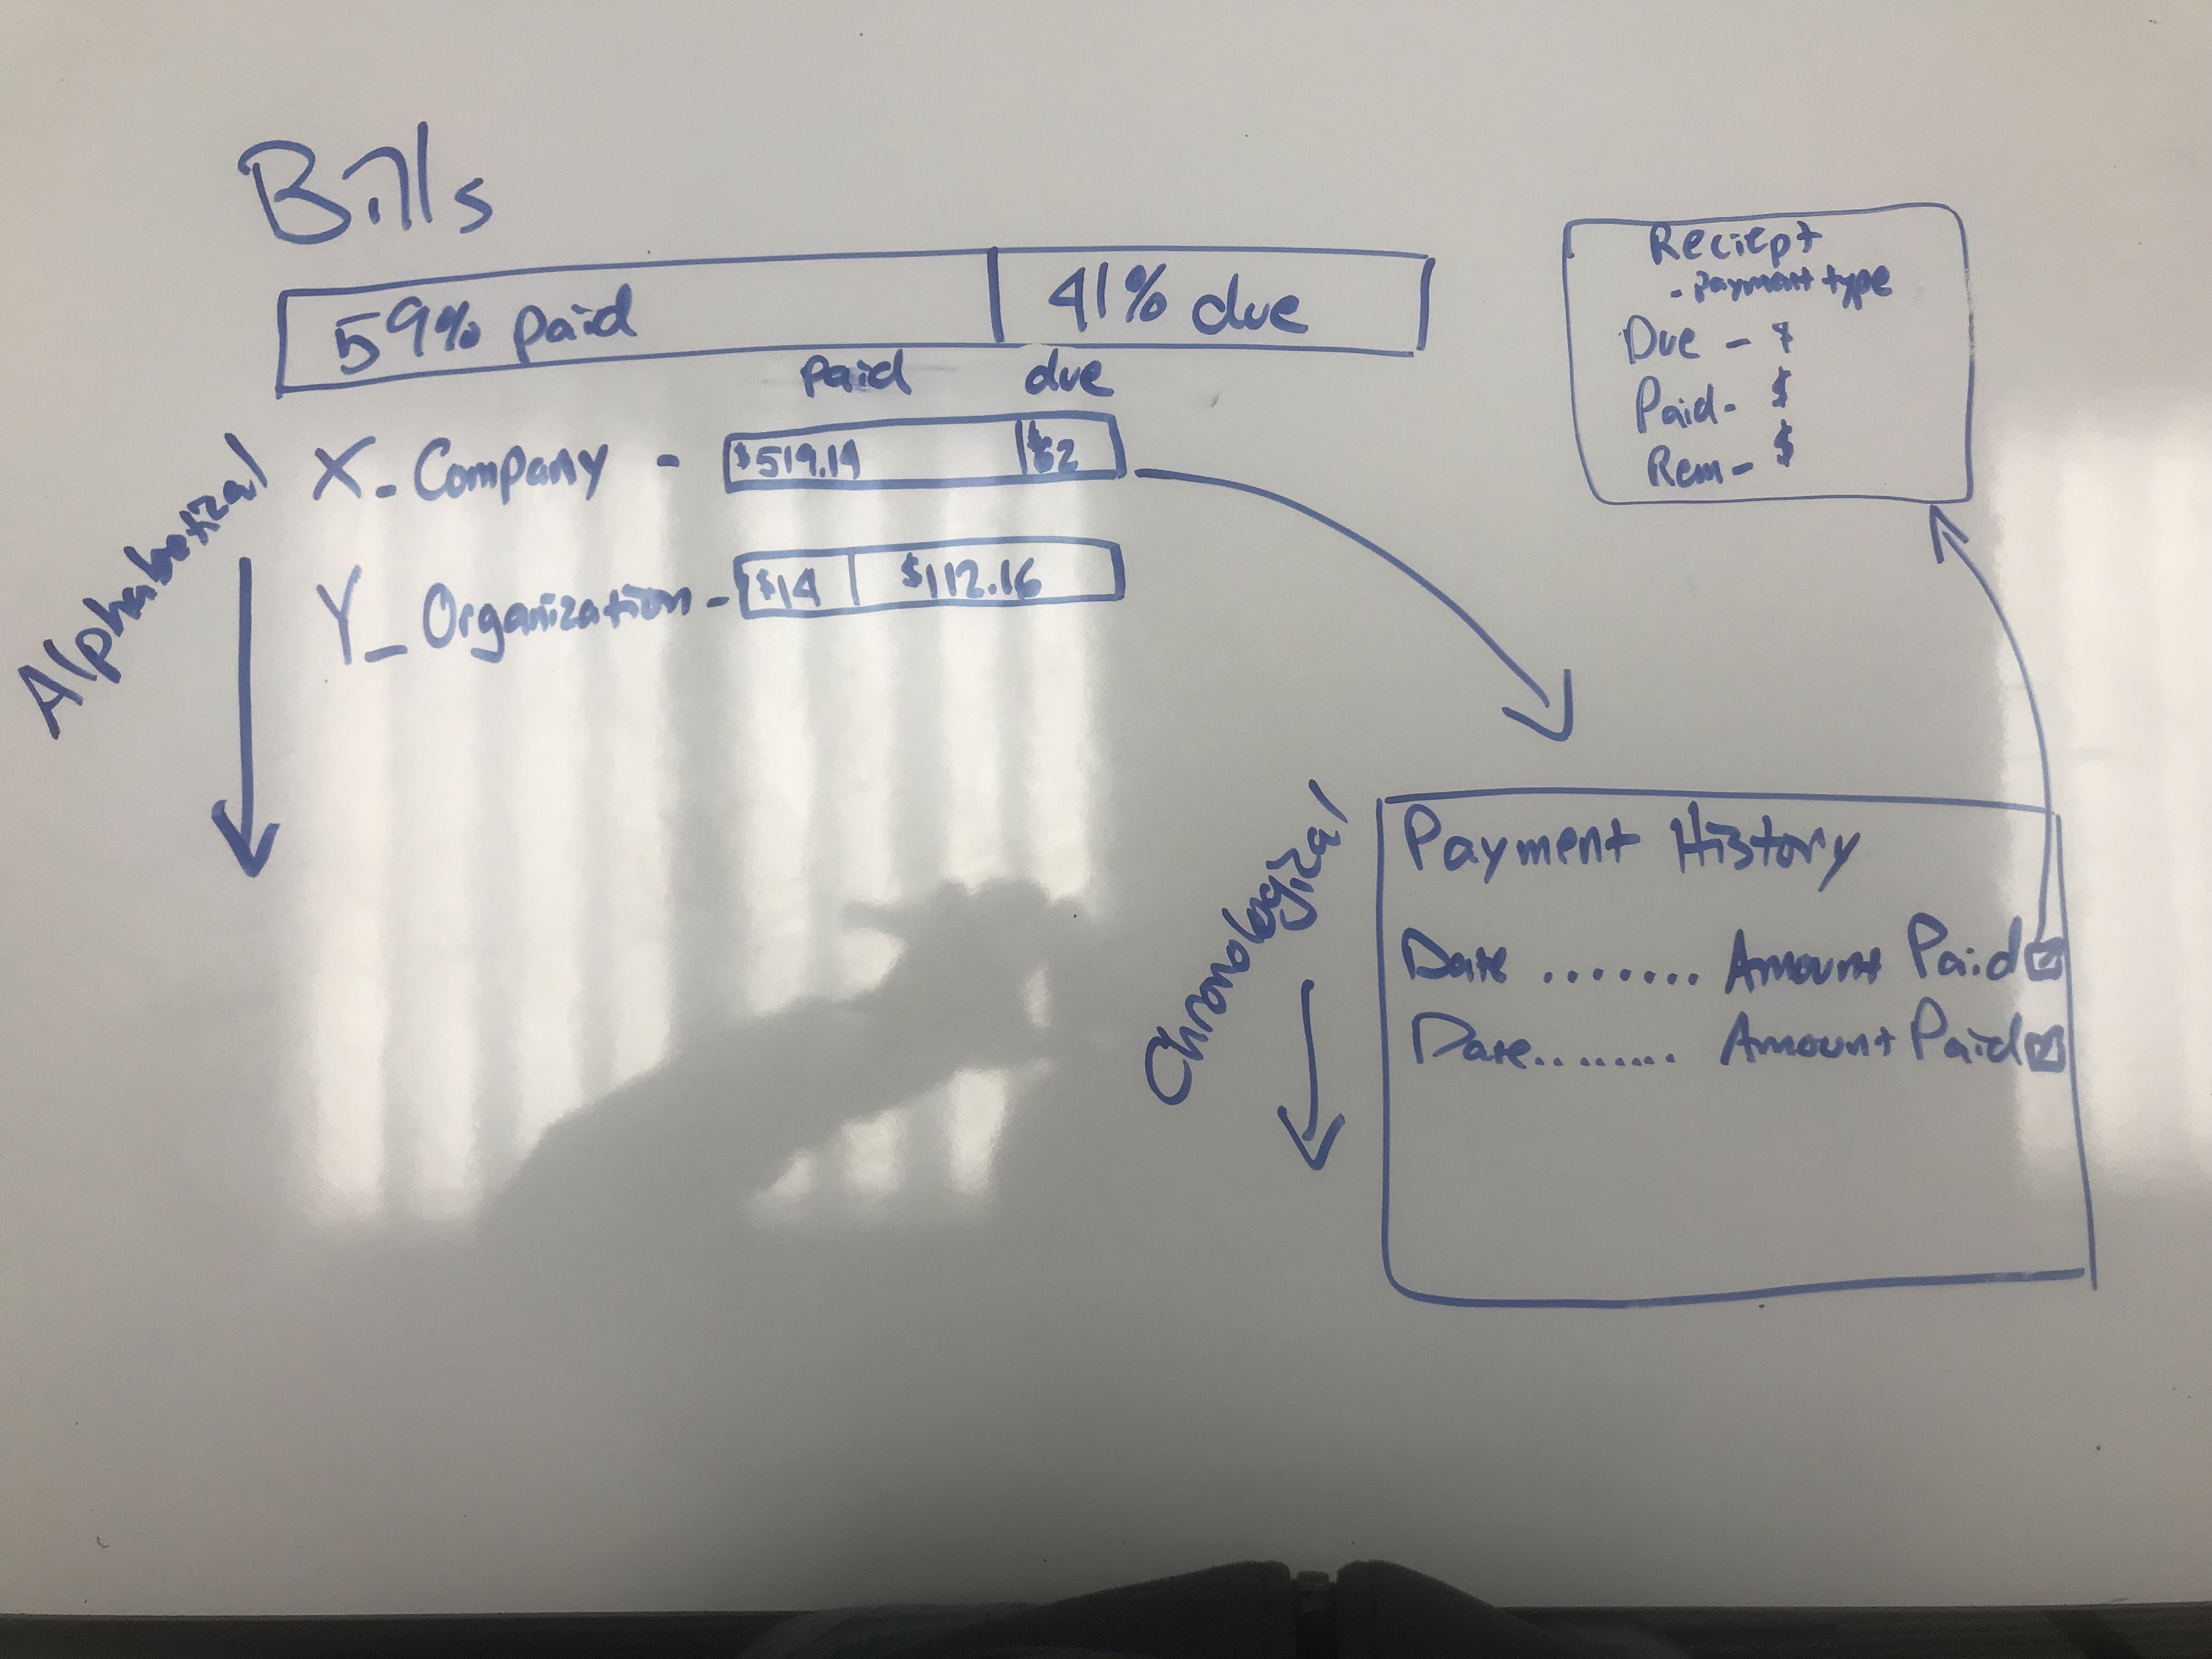 Bills
59% paid 41% due
paid due
Alphabetical
X_Company - $519.19 $2
Y_Organization - $14 $112.16
Reciept
- payment type
Due - $
Paid - $
Rem - $
Chronological
Payment History
Date ....... Amount Paid
Date........ Amount Paid